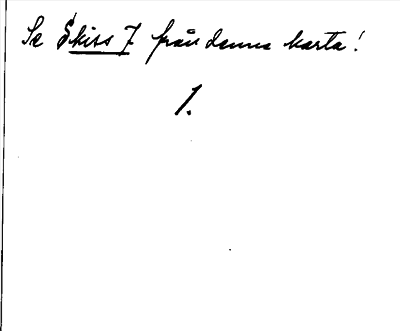 Se Skiss 7 från denna karta!
1.